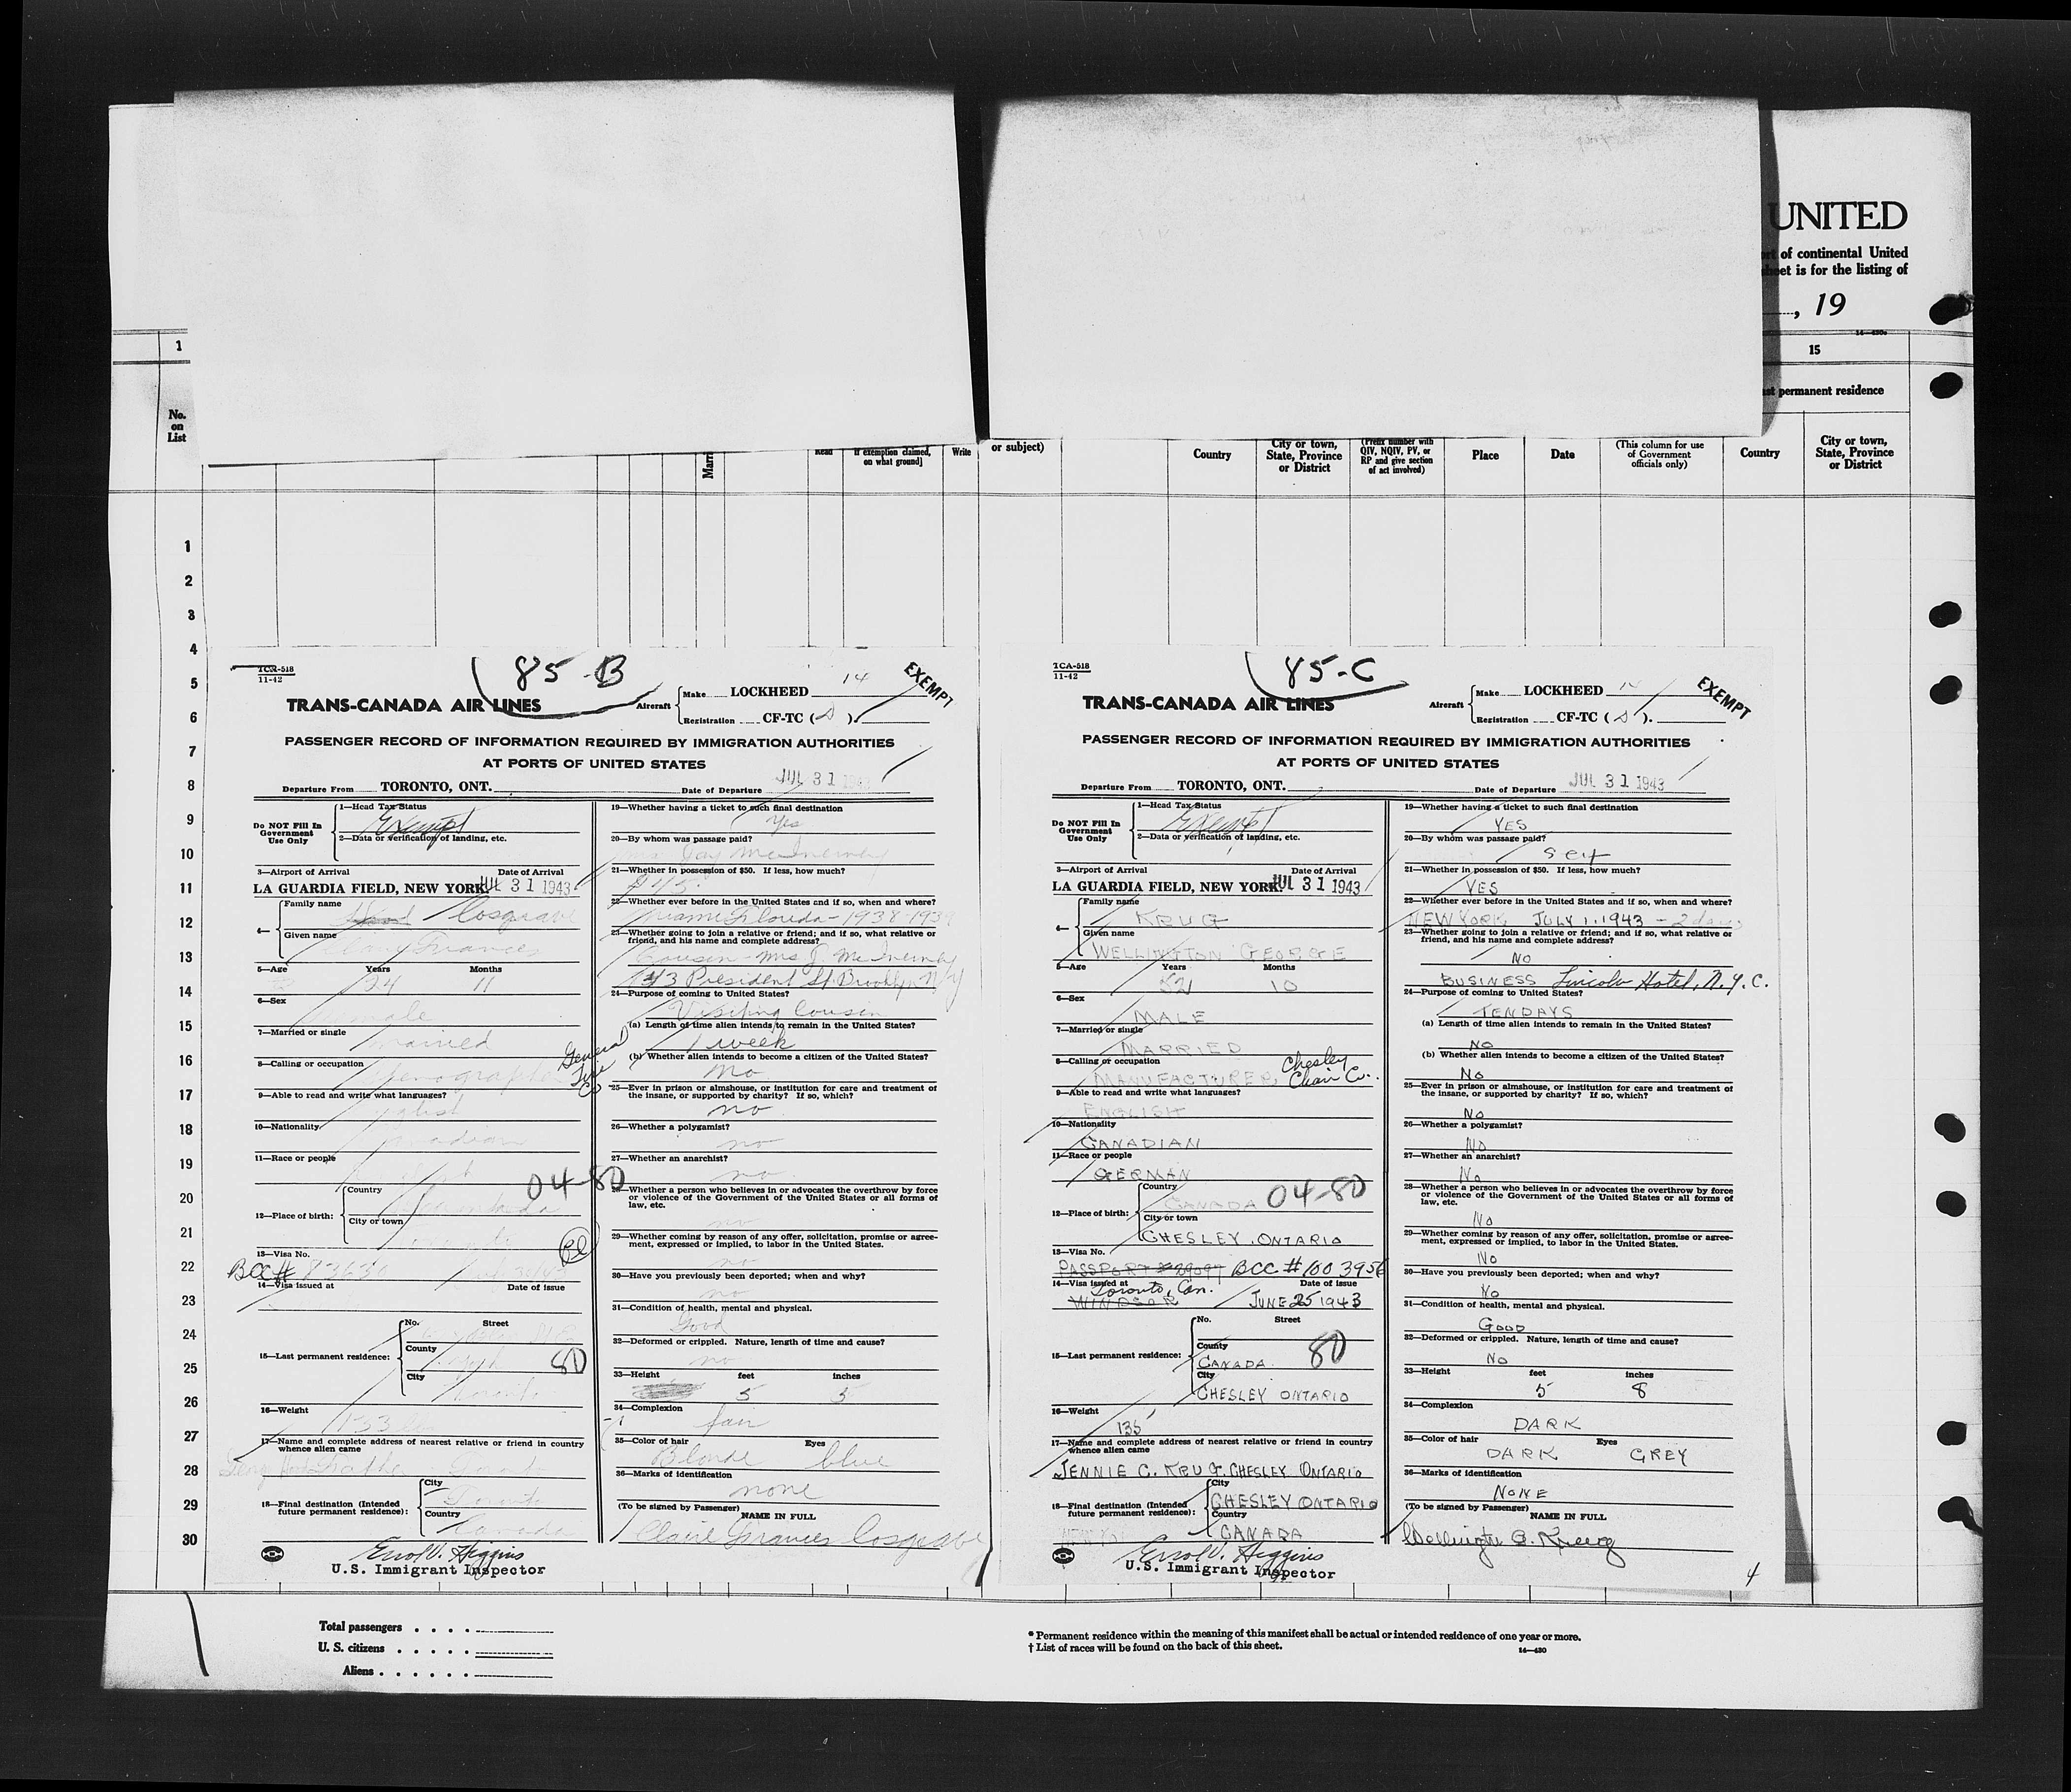 UNITED
of continental United
sheet is for the listing of
, 19
1
15
permanent residence
No.
on
List
Read
if exemption claimed,
on what ground]
Write
or subject)
Country
City or town,
State, Province
or District
(Prefix number with
QIV, NQIV, PV, or
RP and give section
of act involved)
Place
Date
(This column for use
of Government
officials only)
Country
City or town,
State, Province
or District
1
2
3
4
5
6
7
8
9
10
11
12
13
14
15
16
17
18
19
20
21
22
23
24
25
26
27
28
29
30
TCA-518
11-42
85-B
EXEMPT
TRANS-CANADA AIR LINES
Aircraft
Make LOCKHEED 14
Registration CF-TC ( ).
PASSENGER RECORD OF INFORMATION REQUIRED BY IMMIGRATION AUTHORITIES
AT PORTS OF UNITED STATES
Departure From TORONTO, ONT. Date of Departure JUL 31 1943
Do NOT Fill In
Government
Use Only
1—Head Tax Status
Exempt
2—Data or verification of landing, etc.
3—Airport of Arrival Date of Arrival
LA GUARDIA FIELD, NEW YORK JUL 31 1943
4—
Family name
Cosgrave
Given name
Frances
5—Age Years Months
24 11
6—Sex
male
7—Married or single
Married
8—Calling or occupation
General
Tire
Co
9—Able to read and write what languages?
10—Nationality
11—Race or people
04-80
12—Place of birth:
Country
City or town
13—Visa No.
BCC#
14—Visa issued at Date of issue
15—Last permanent residence:
No. Street
County
80
City
16—Weight
133
17—Name and complete address of nearest relative or friend in country
whence alien came
18—Final destination (Intended
future permanent residence):
City
Toronto
Country
Canada
Errol V. Higgins
U.S. Immigrant Inspector
19—Whether having a ticket to such final destination
Yes
20—By whom was passage paid?
Mrs Jay McInerney
21—Whether in possession of $50. If less, how much?
$45.
22—Whether ever before in the United States and if so, when and where?
Miami Florida - 1938-193
23—Whether going to join a relative or friend; and if so, what relative or
friend, and his name and complete address?
Cousin - Mrs J. McInerney
President St. Brooklyn N/y
24—Purpose of coming to United States?
Visiting Cousin
(a) Length of time alien intends to remain in the United States?
1 week
(b) Whether alien intends to become a citizen of the United States?
No
25—Ever in prison or almshouse, or institution for care and treatment of
the insane, or supported by charity? If so, which?
no
26—Whether a polygamist?
no
27—Whether an anarchist?
no
28—Whether a person who believes in or advocates the overthrow by force
or violence of the Government of the United States or all forms of
law, etc.
no
29—Whether coming by reason of any offer, solicitation, promise or agree-
ment, expressed or implied, to labor in the United States.
no
30—Have you previously been deported; when and why?
no
31—Condition of health, mental and physical.
Good
32—Deformed or crippled. Nature, length of time and cause?
no
33—Height feet inches
5 5
34—Complexion
fair
35—Color of hair Eyes
Blonde blue
36—Marks of identification
none
(To be signed by Passenger)
NAME IN FULL
Claire Frances Cosgrave
TCA-518
11-42
85-C
EXEMPT
TRANS-CANADA AIR LINES
Aircraft
Make LOCKHEED 14
Registration CF-TC ( ).
PASSENGER RECORD OF INFORMATION REQUIRED BY IMMIGRATION AUTHORITIES
AT PORTS OF UNITED STATES
Departure From TORONTO, ONT. Date of Departure JUL 31 1943
Do NOT Fill In
Government
Use Only
1—Head Tax Status
Exempt
2—Data or verification of landing, etc.
3—Airport of Arrival Date of Arrival
LA GUARDIA FIELD, NEW YORK JUL 31 1943
4—
Family name
KRUG
Given name
WELLINGTON GEORGE
5—Age Years Months
52 10
6—Sex
MALE
7—Married or single
MARRIED
8—Calling or occupation
MANUFACTURER, Chesley
Chair Co.
9—Able to read and write what languages?
ENGLISH
10—Nationality
CANADIAN
11—Race or people
GERMAN
12—Place of birth:
Country
CANADA 04-80
City or town
CHESLEY, ONTARIO
13—Visa No.
PASSPORT # BCC # 100 3956
14—Visa issued at Date of issue
Toronto, Can.
WINDSOR JUNE 25 1943
15—Last permanent residence:
No. Street
County
CANADA. 80
City
CHESLEY ONTARIO
16—Weight
135
17—Name and complete address of nearest relative or friend in country
whence alien came
JENNIE C. KRUG. CHESLEY ONTARIO
18—Final destination (Intended
future permanent residence):
City
CHESLEY ONTARIO
Country
CANADA
Errol V. Higgins
U.S. Immigrant Inspector
19—Whether having a ticket to such final destination
YES
20—By whom was passage paid?
Self
21—Whether in possession of $50. If less, how much?
YES
22—Whether ever before in the United States and if so, when and where?
NEW YORK, JULY 1, 1943 - 2 days
23—Whether going to join a relative or friend; and if so, what relative or
friend, and his name and complete address?
NO
BUSINESS Lincoln Hotel, N.Y.C.
24—Purpose of coming to United States?
TEN DAYS
(a) Length of time alien intends to remain in the United States?
NO
(b) Whether alien intends to become a citizen of the United States?
NO
25—Ever in prison or almshouse, or institution for care and treatment of
the insane, or supported by charity? If so, which?
NO
26—Whether a polygamist?
NO
27—Whether an anarchist?
No
28—Whether a person who believes in or advocates the overthrow by force
or violence of the Government of the United States or all forms of
law, etc.
No
29—Whether coming by reason of any offer, solicitation, promise or agree-
ment, expressed or implied, to labor in the United States.
No
30—Have you previously been deported; when and why?
No
31—Condition of health, mental and physical.
GOOD
32—Deformed or crippled. Nature, length of time and cause?
No
33—Height feet inches
5 8
34—Complexion
DARK
35—Color of hair Eyes
DARK GREY
36—Marks of identification
NONE
(To be signed by Passenger)
NAME IN FULL
Wellington G. Krug
4
Total passengers . . . .
U. S. citizens . . . . .
Aliens . . . . . .
* Permanent residence within the meaning of this manifest shall be actual or intended residence of one year or more.
† List of races will be found on the back of this sheet.
14—430